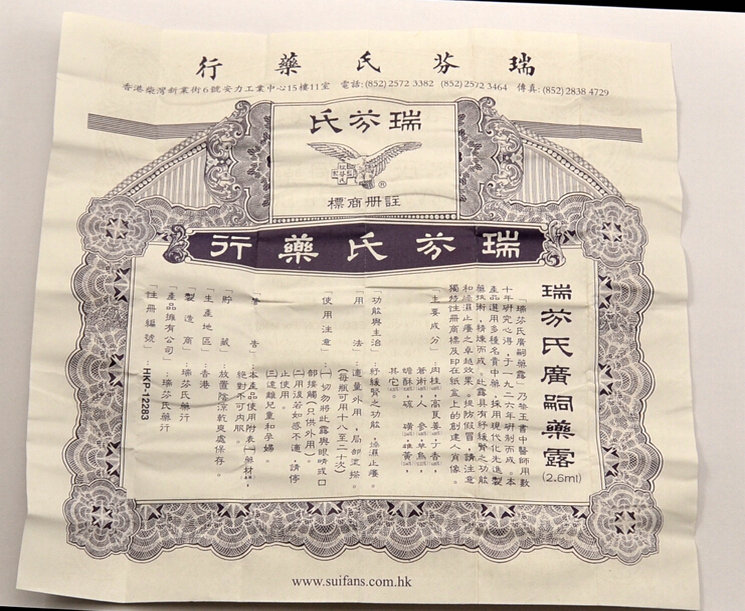 瑞芬氏藥行
香港柴灣新業街6號安力工業中心15樓11室　電話:(852)2572 3382　(852)2572 3464　傳真:(852)2838 4729
瑞芬氏
®
註册商標
瑞芬氏藥行
瑞芬氏廣嗣藥露(2.6ml)
「瑞芬氏廣嗣藥露」乃黎玉書中醫師用數
十年研究心得，于一九二六年研制而成。本
產品選用多種名貴中藥，採用現代化先進製
藥技術，精煉而成。此露具有紓緩腎之功能
和除濕止癢之卓越效果。提防假冒，請注意
獨特註冊商標及印在紙盒上的創建人肖像。
「主要成分」：肉桂、高良姜、丁香、
蒼術、人參、草烏、
蟾酥、硫磺、雄黃、
其它。
「功能與主治」：紓緩腎之功能，除濕止癢。
「用　　法」：適量外用，局部塗搽。
(每瓶可用十八至二十次)
「使用注意」：(一)切勿將此露與眼睛或口
部接觸(只供外用)。
(二)用後若如感不適，請停
止使用。
(三)遠離兒童和孕婦。
「警　　告」：本產品使用附表一藥材，
絕對不可內服。
「貯　　藏」：放置陰涼乾爽處保存。
「生產地區」：香港
「製造商」：瑞芬氏藥行
「產品擁有公司」：瑞芬氏藥行
「註冊編號」：HKP-12283
www.suifans.com.hk